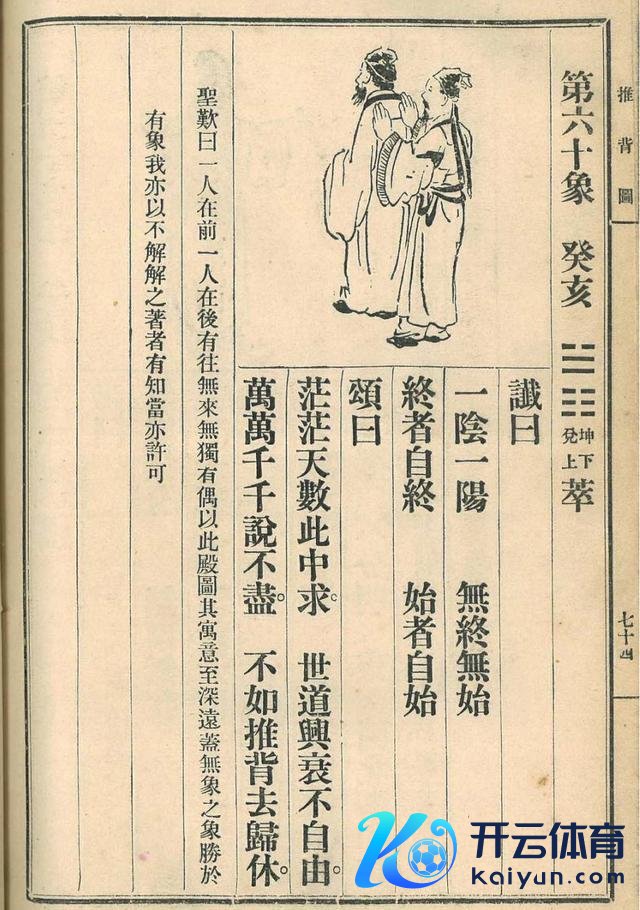 推背圖
七十四
第六十象 癸亥 ䷬ 坤下兌上 萃
讖曰
一陰一陽 無終無始
終者自終 始者自始
頌曰
茫茫天數此中求。 世道興衰不自由。
萬萬千千說不盡。 不如推背去歸休。
聖歎曰一人在前一人在後有往無來無獨有偶以此殿圖其寓意至深遠蓋無象之象勝於
有象我亦以不解解之著者有知當亦許可
开云体育
kaiyun.com